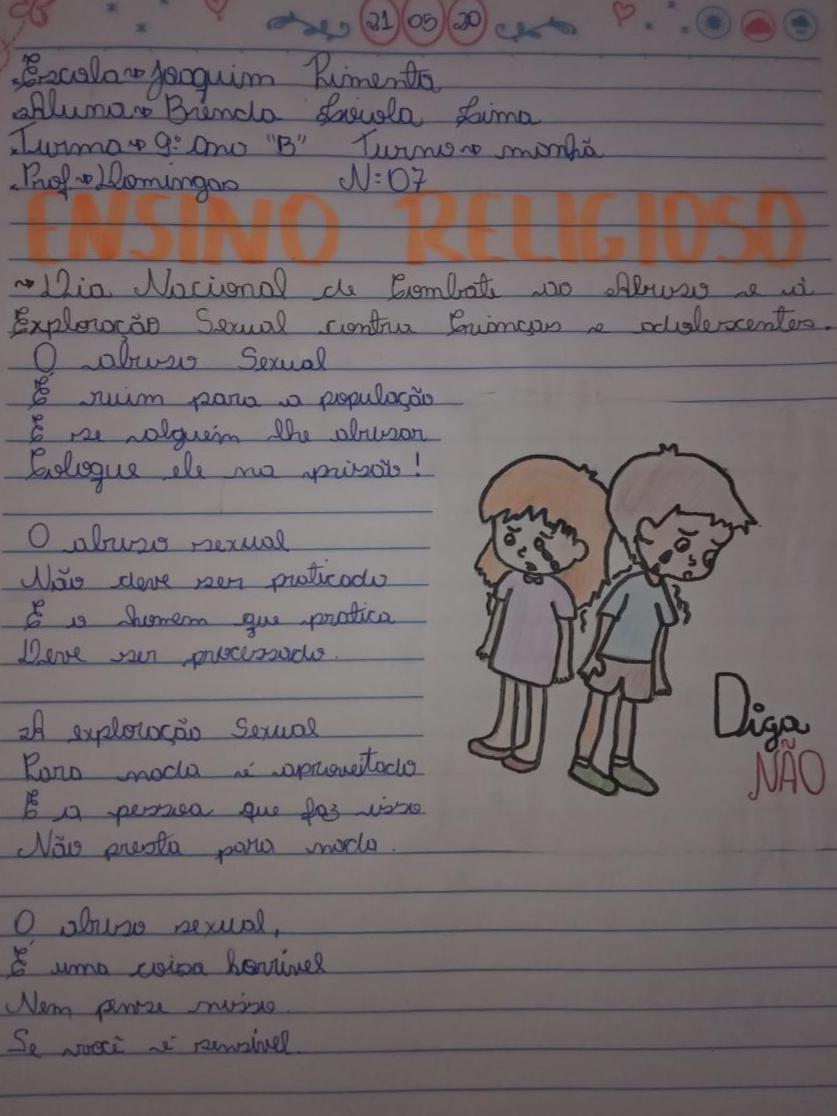 21 05 20
Escola → Joaquim Pimenta
Aluna → Brenda Lívola Lima
Turma → 9º ano "B" Turno → manhã
Prof → Domingos Nº: 07
ENSINO RELIGIOSO
→ Dia Nacional de Combate ao Abuso e à
Exploração Sexual contra Crianças e adolescentes.
O abuso Sexual
É ruim para a população
E se alguém lhe abusar
Coloque ele na prisão!
O abuso sexual
Não deve ser praticado
E o homem que pratica
Deve ser processado.
A exploração Sexual
Para nada é aproveitado
E a pessoa que faz isso
Não presta para nada.
Diga
NÃO
O abuso sexual,
É uma coisa horrível
Nem pense nisso.
Se você é sensível.